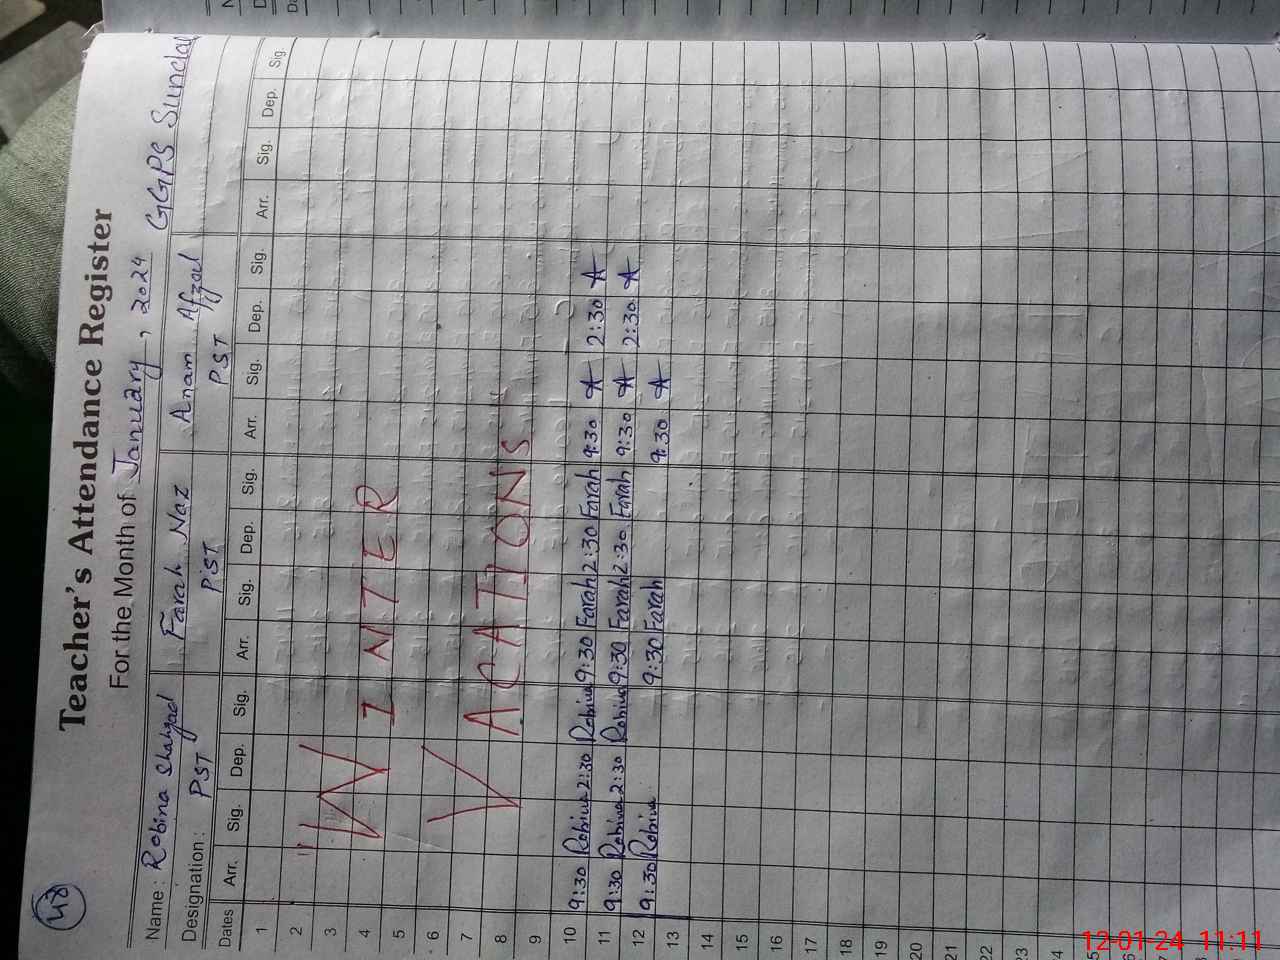 48
Teacher's Attendance Register
For the Month of January, 2024 GGPS
Name: Robina Shahzad Farah Naz Anam Afzal
Designation: PST PST PST
Dates Arr. Sig. Dep. Sig. Arr. Sig. Dep. Sig. Arr. Sig. Dep. Sig. Arr. Sig. Dep. Sig.
1
2
3
4
5
6
7
8
9
"WINTER
VACATIONS
10 9:30 Robina 2:30 Robina 9:30 Farah 2:30 Farah 9:30 A 2:30 A
11 9:30 Robina 2:30 Robina 9:30 Farah 2:30 Farah 9:30 A 2:30 A
12 9:30 Robina 9:30 Farah 9:30 A
13
14
15
16
17
18
19
20
21
22
23
24
25
26
27
12-01-24 11:11